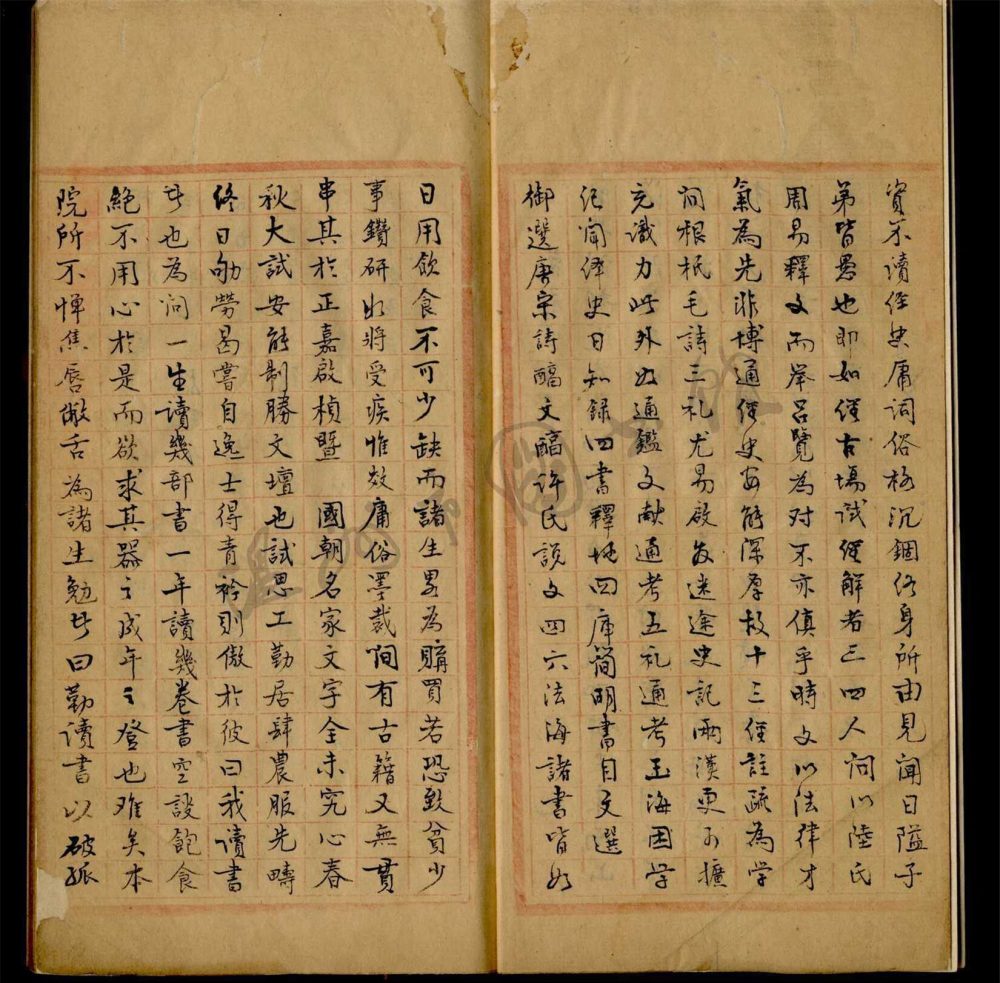 資不讀經史庸詞俗格沉錮終身所由見聞日隘子
弟皆愚也即如經古場試經解者三四人問以陸氏
周易釋文而举呂覽為对不亦傎乎時文以法律才
氣為先非博通經史安能深厚故十三經註疏為学
問根柢毛詩三礼尤易啟发迷途史記兩漢更可擴
充識力此外如通鑑文献通考五礼通考玉海困学
纪聞繹史日知録四書釋地四庫简明書目文選
御選唐宋詩醇文醇许氏說文四六法海諸書皆如
日用飲食不可少缺而諸生畏為購買若恐致貧少
事鑽研如將受疾惟效庸俗墨裁间有古籍又無貫
串其於正嘉啟楨暨　國朝名家文字全未究心春
秋大試安能制勝文壇也試思工勤居肆農服先疇
终日劬勞曷嘗自逸士得青衿則傲於彼曰我读書
者也為问一生讀幾部書一年讀幾卷書空設飽食
絶不用心於是而欲求其器之成年之登也难矣本
院所不惮焦唇敝舌為諸生勉者曰勤讀書以破孤